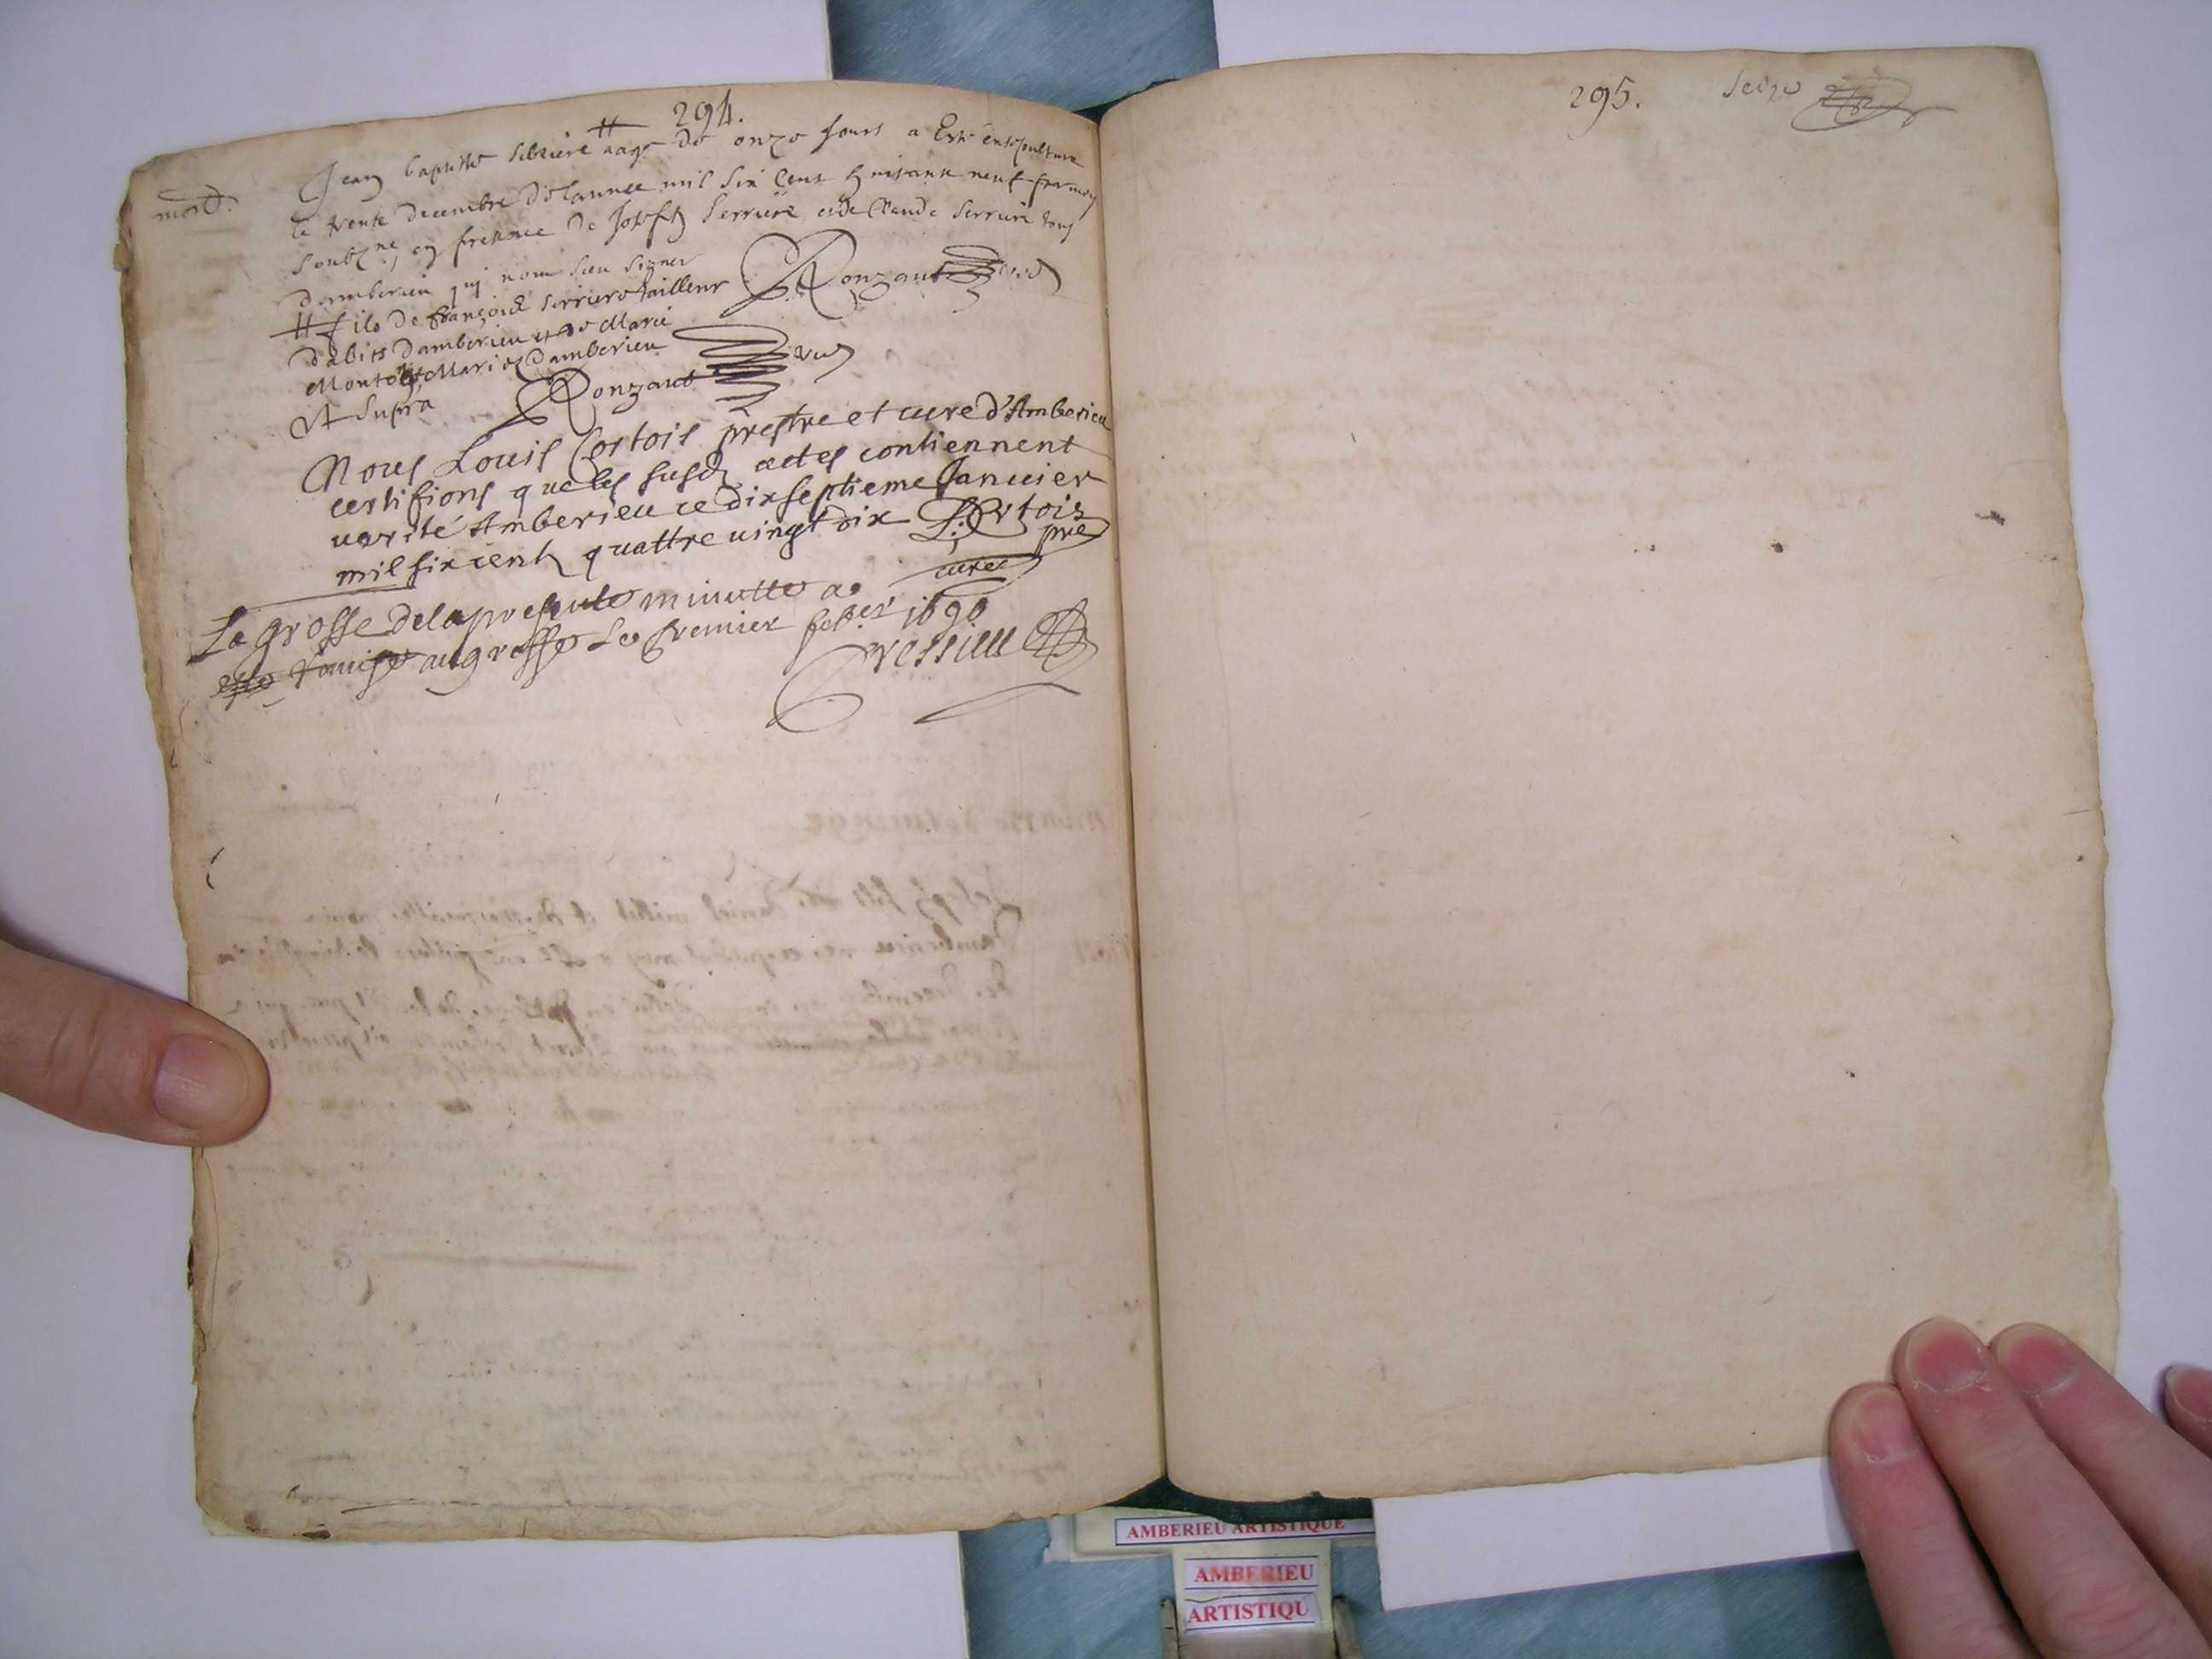 294.
mort.
Jean baptiste serriere # aage de onze jours a Esté ensepulture
le trente decembre de lannee mil six cent huitante neuf par moy
soubz.ne, en presence de Joseph Serriere et de Claude Serriere tous
damberieu qui nont sceu signer Ronzaut vic
# fils de françois Serriere tailleur
dabits damberieu et de Marie
Marie damberieu
Vt supra Ronzaut vic
Nous Louis Cortois prestre et curé d'Amberieu
certifions que les susd. actes contiennent
verité Amberieu ce dixseptieme Januier
mil six cent quattre uingt dix L. Cortois
pre
curé
La grosse de la presente minutte a
esté remise au greffe Le premier feb.er 1690
Bressieu
295.
Seize
AMBERIEU ARTISTIQUE
AMBERIEU
ARTISTIQU